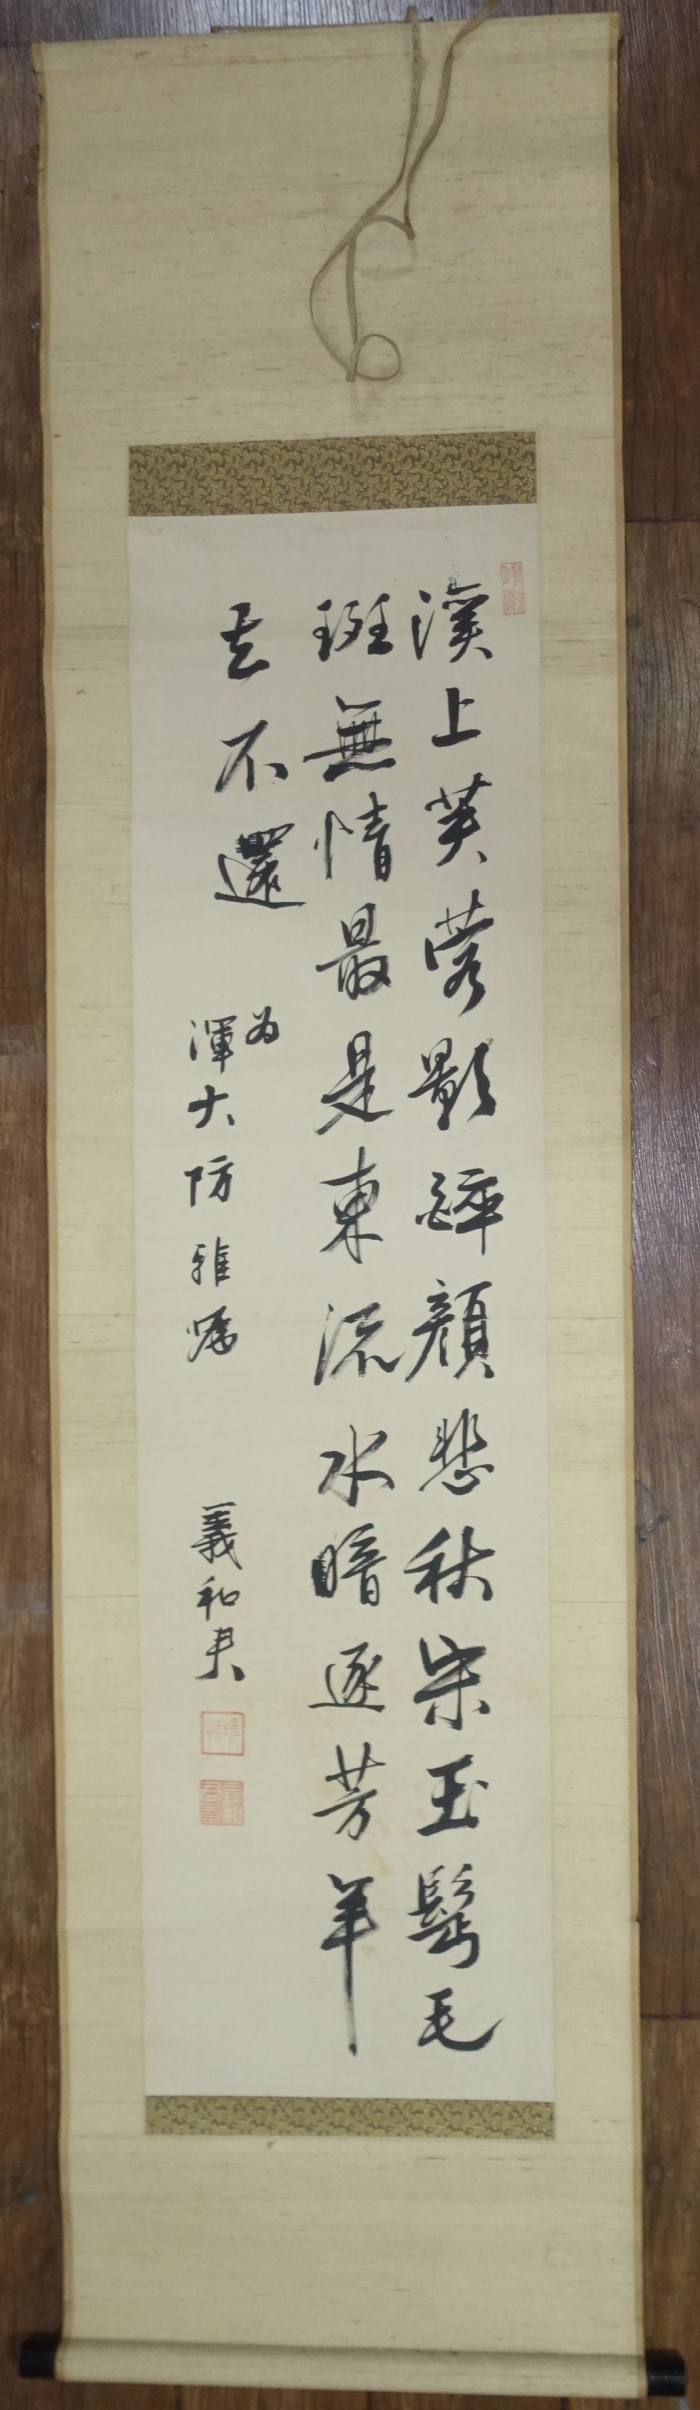 溪上芙蓉影醉顏悲秋宋玉鬂毛
斑無情最是東流水暗逐芳年
去不還
為
渾大防雅嘱
義和夫